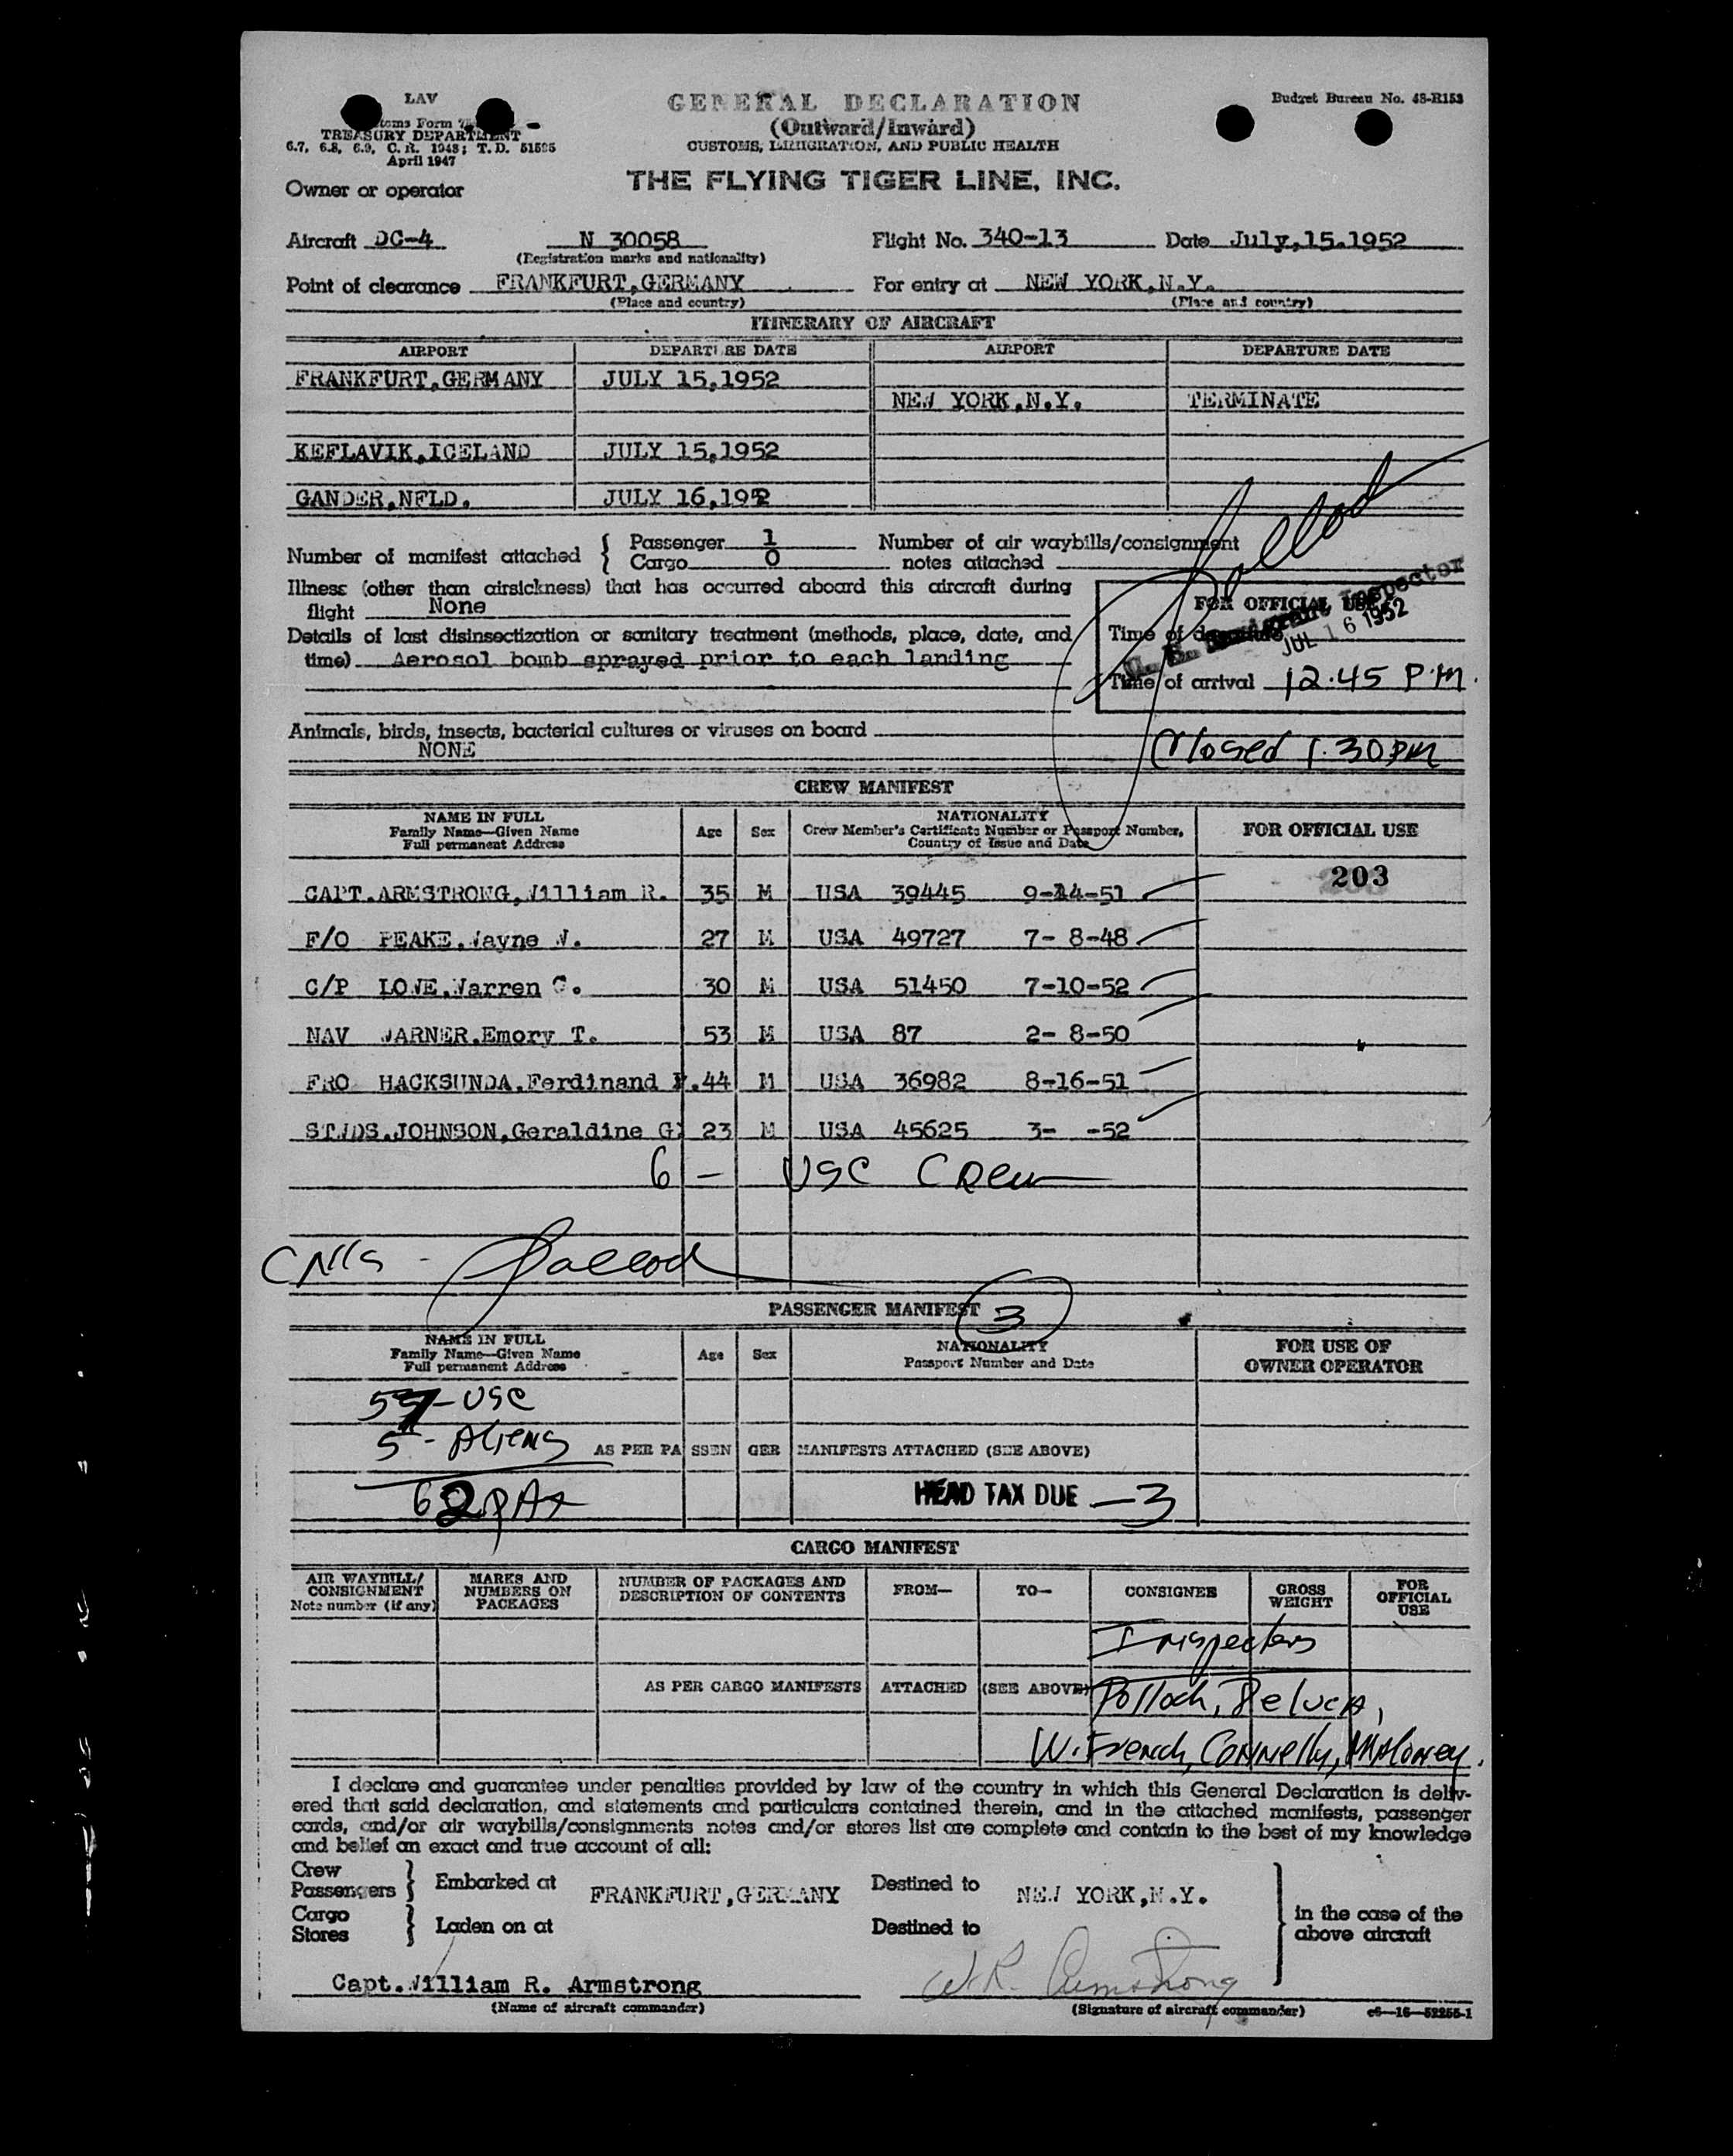 LAV
GENERAL DECLARATION
Budget Bureau No. 48-R153
Customs Form
(Outward/Inward)
TREASURY DEPARTMENT
CUSTOMS, IMMIGRATION, AND PUBLIC HEALTH
6.7, 6.8, 6.9, C. R. 1943; T. D. 51595
April 1947
THE FLYING TIGER LINE, INC.
Owner or operator
Aircraft DC-4 N 30058 Flight No. 340-13 Date July,15.1952
(Registration marks and nationality)
Point of clearance FRANKFURT,GERMANY For entry at NEW YORK,N.Y.
(Place and country) (Place and country)
ITINERARY OF AIRCRAFT
AIRPORT DEPARTURE DATE AIRPORT DEPARTURE DATE
FRANKFURT,GERMANY JULY 15,1952
NEW YORK,N.Y. TERMINATE
KEFLAVIK,ICELAND JULY 15,1952
GANDER,NFLD. JULY 16,1952
Number of manifest attached { Passenger 1 Number of air waybills/consignment
Cargo 0 notes attached
Illness (other than airsickness) that has occurred aboard this aircraft during
flight None
FOR OFFICIAL USE
Details of last disinsectization or sanitary treatment (methods, place, date, and
time) Aerosol bomb sprayed prior to each landing
Time of departure
U. S. Immigrant Inspector
JUL 16 1952
Time of arrival 12.45 P.M.
Animals, birds, insects, bacterial cultures or viruses on board
NONE
Closed 1.30 PM
CREW MANIFEST
NAME IN FULL
Family Name—Given Name
Full permanent Address
Age Sex
NATIONALITY
Crew Member's Certificate Number or Passport Number,
Country of Issue and Date
FOR OFFICIAL USE
203
CAPT.ARMSTRONG,William R. 35 M USA 39445 9-14-51
F/O PEAKE,Wayne W. 27 M USA 49727 7- 8-48
C/P LOWE,Warren C. 30 M USA 51450 7-10-52
NAV WARNER,Emory T. 53 M USA 87 2- 8-50
FRO HACKSUNDA,Ferdinand 44 M USA 36982 8-16-51
STWDS.JOHNSON,Geraldine G. 23 M USA 45625 3- -52
6 - USC Crew
PASSENGER MANIFEST 3
NAME IN FULL
Family Name—Given Name
Full permanent Address
Age Sex
NATIONALITY
Passport Number and Date
FOR USE OF
OWNER OPERATOR
57 - USC
5 - Aliens
AS PER PASSENGER MANIFESTS ATTACHED (SEE ABOVE)
62 PAX
HEAD TAX DUE - 3
CARGO MANIFEST
AIR WAYBILL/
CONSIGNMENT
Note number (if any)
MARKS AND
NUMBERS ON
PACKAGES
NUMBER OF PACKAGES AND
DESCRIPTION OF CONTENTS
FROM— TO— CONSIGNEE
GROSS
WEIGHT
FOR
OFFICIAL
USE
Inspectors
AS PER CARGO MANIFESTS ATTACHED (SEE ABOVE)
Pollock, DeLucia,
W. French, Connelly, Maloney.
I declare and guarantee under penalties provided by law of the country in which this General Declaration is deliv-
ered that said declaration, and statements and particulars contained therein, and in the attached manifests, passenger
cards, and/or air waybills/consignments notes and/or stores list are complete and contain to the best of my knowledge
and belief an exact and true account of all:
Crew
Passengers } Embarked at FRANKFURT,GERMANY Destined to NEW YORK,N.Y.
Cargo
Stores } Laden on at Destined to
in the case of the
above aircraft
Capt.William R. Armstrong W.R. Armstrong
(Name of aircraft commander) (Signature of aircraft commander) c6—16—52255-1